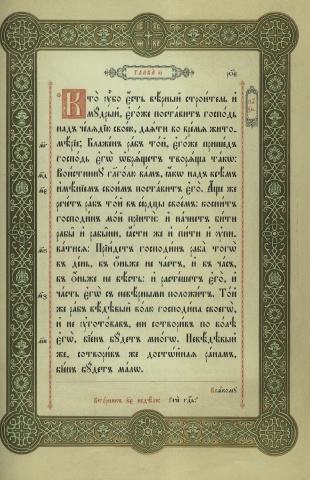 Кто̀ ᲂу҆́бо є҆́сть вѣ́рный строи́тель и҆
мꙋ́дрый, є҆го́же поста́витъ госпо́дь
над̾ че́лѧдїю свое́ю, даѧ́ти во вре́мѧ жито-
мѣ́рїе; Бл҃же́нъ ра́бъ то́й, є҆го́же прише́дъ
госпо́дь є҆гѡ̀ ѡ҆брѧ́щетъ творѧ́ща та́кѡ:
Вои́стиннꙋ глаго́лю ва́мъ, ꙗ҆́кѡ над̾ всѣ́мъ
и҆мѣ́нїемъ свои́мъ поста́витъ є҆го̀. А҆́ще же
рече́тъ ра́бъ то́й въ се́рдцы свое́мъ: косни́тъ
господи́нъ мо́й прїитѝ: и҆ на́чнетъ би́ти
рабы̑ и҆ рабы̑ни, ꙗ҆́сти же и҆ пи́ти и҆ ᲂу҆пи-
ва́тисѧ: Прїи́детъ господи́нъ раба̀ тогѡ̀
въ де́нь, въ ѻ҆́ньже не ча́етъ, и҆ въ ча́съ,
въ ѻ҆́ньже не вѣ́сть: и҆ расте́шетъ є҆го̀, и҆
ча́сть є҆гѡ̀ съ невѣ́рными положи́тъ. То́й
же ра́бъ вѣ́дѣвый во́лю господи́на своегѡ̀,
и҆ не ᲂу҆гото́вавъ, ни сотвори́въ по во́лѣ
є҆гѡ̀, бїе́нъ бꙋ́детъ мно́гѡ. Невѣ́дѣвый
же, сотвори́въ же достѡ́йнаѧ ра́намъ,
бїе́нъ бꙋ́детъ ма́лѡ.
Всѧ́комꙋ